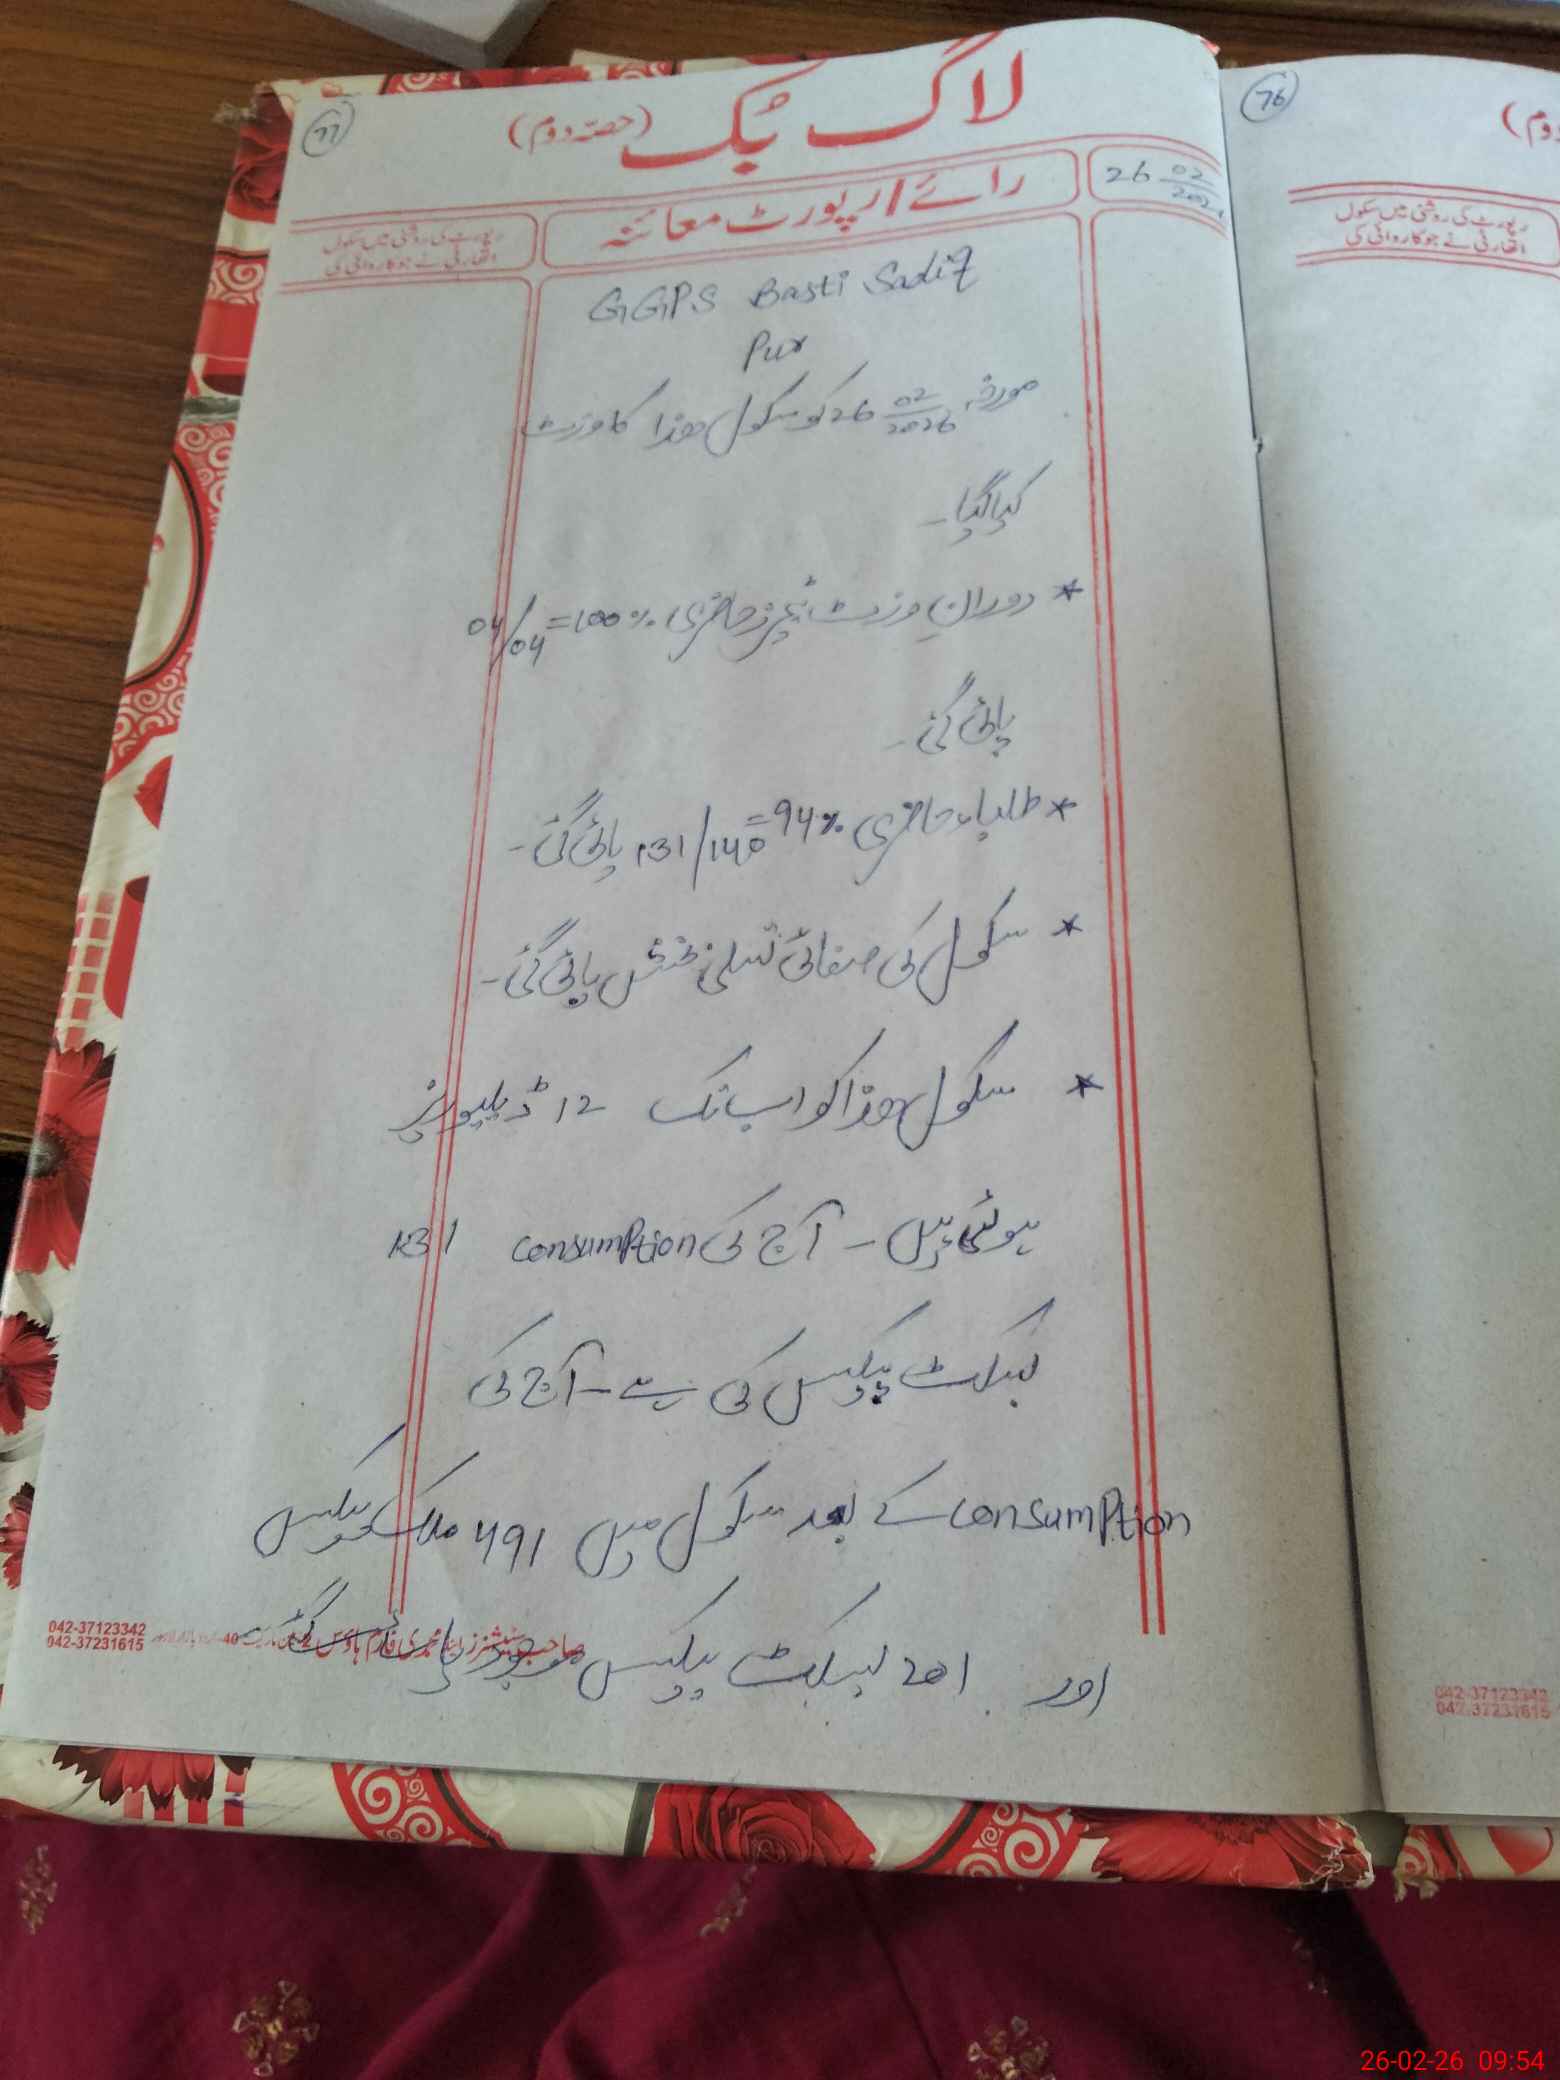 77
لاگ بک (حصہ دوم)
26 02/2026
رائے / رپورٹ معائنہ
رپورٹ کی روشنی میں سکول
اتھارٹی نے جو کاروائی کی
GGPS Basti Sadiq
Pur
مورخہ 26 02/2026 کو سکول ھذا کا وزٹ
کیا گیا۔
* دورانِ وزٹ ٹیچرز حاضری 100% = 04/04
پائی گئی۔
* طلباء حاضری 94% = 131/140 پائی گئی۔
* سکول کی صفائی تسلی بخش پائی گئی۔
* سکول ھذا کو اب تک 12 ڈیلیوریز
ہوئی ہیں۔ آج کی consumption 131
بسکٹ پیکس کی ہے۔ آج کی
consumption کے بعد سکول میں 491 ملک پیکس
اور 201 بسکٹ پیکس موجود پائے گئے۔
042-37123342
042-37231615
76
دوم)
رپورٹ کی روشنی میں سکول
اتھارٹی نے جو کاروائی کی
042-37123342
042-37231615
26-02-26 09:54